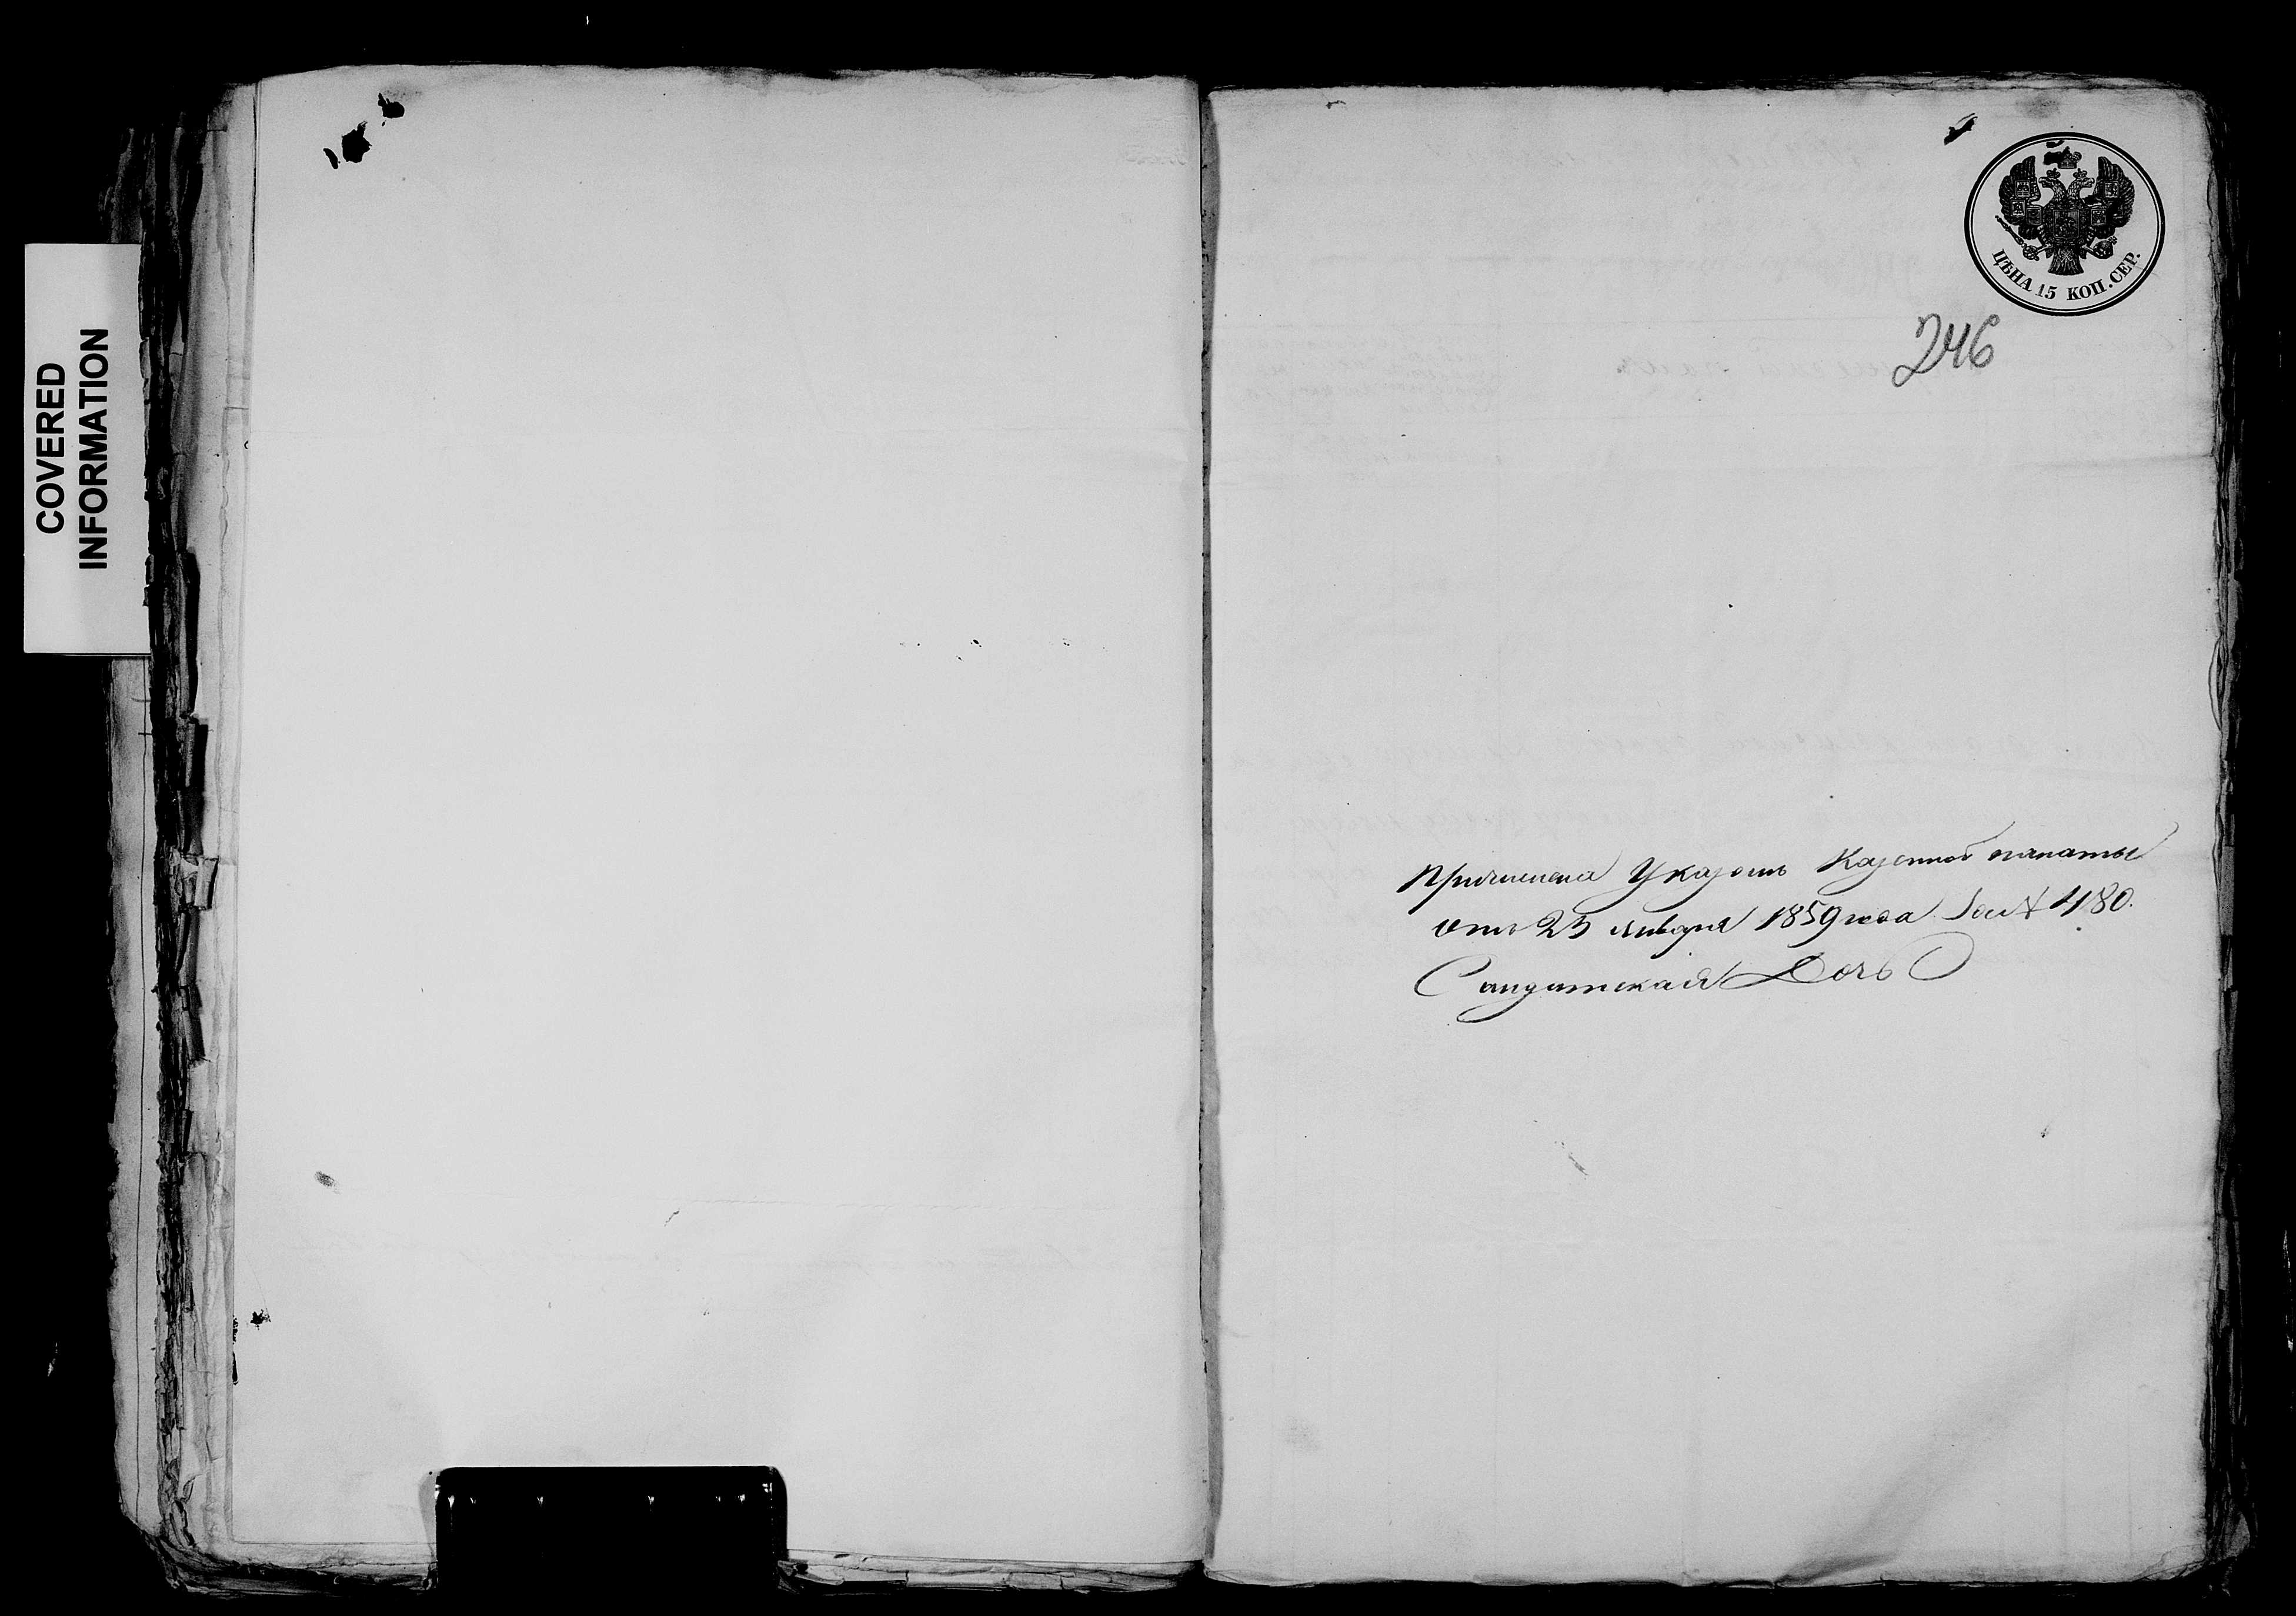 COVERED
INFORMATION
ЦѢНА 15 КОП. СЕР.
246
Причислена Указомъ Казенной палаты
отъ 23 января 1859 года за № 480.
Солдатская Дочь